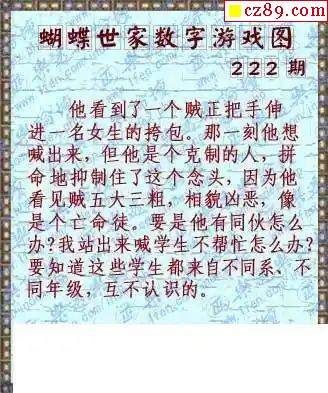 cz89.com
蝴蝶世家数字游戏图
222 期
他看到了一个贼正把手伸
进一名女生的挎包。那一刻他想
喊出来，但他是个克制的人，拼
命地抑制住了这个念头，因为他
看见贼五大三粗，相貌凶恶，像
是个亡命徒。要是他有同伙怎么
办?我站出来喊学生不帮忙怎么办?
要知道这些学生都来自不同系、不
同年级，互不认识的。